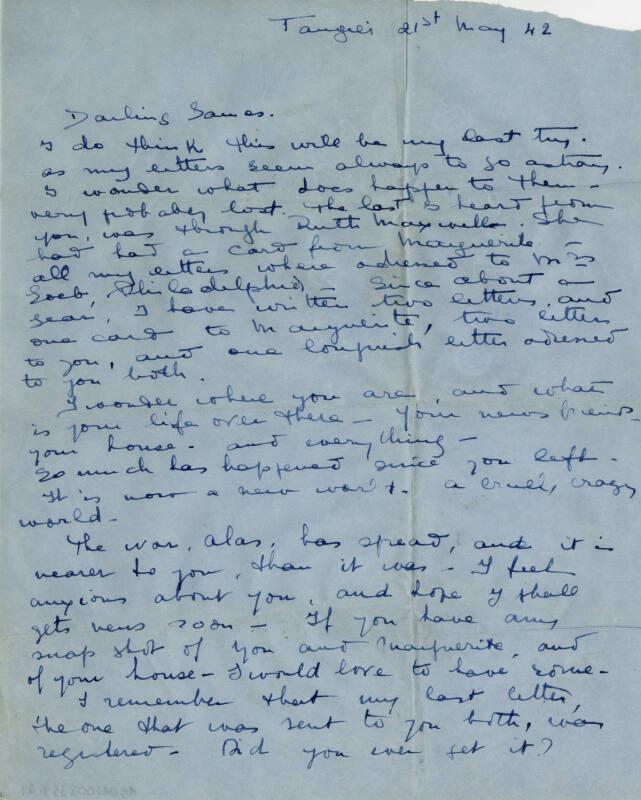 Tangier 21st May 42
Darling James.
I do think this will be my last try.
as my letters seem always to go astray.
I wonder what does happen to them -
very probably lost. The last I heard from
you, was through Ruth Maxwell. She
had had a card from Marguerite. -
all my letters where adressed to Mrs
Loeb, Philadelphia - Since about a
year, I have written two letters, and
one card to Marguerite, two letters
to you, and one longuish letter adressed
to you both.
I wonder where you are, and what
is your life over there - your news friends -
your house - and everything -
So much has happened since you left -
It is now a new world. a cruel, crazy
world -
The war, alas, has spread, and it is
nearer to you, than it was - I feel
anxious about you, and hope I shall
gets news soon - If you have any
snap shot of you and Marguerite, and
of your house - I would love to have some -
I remember that my last letter,
the one that was sent to you both, was
registered - Did you ever get it?